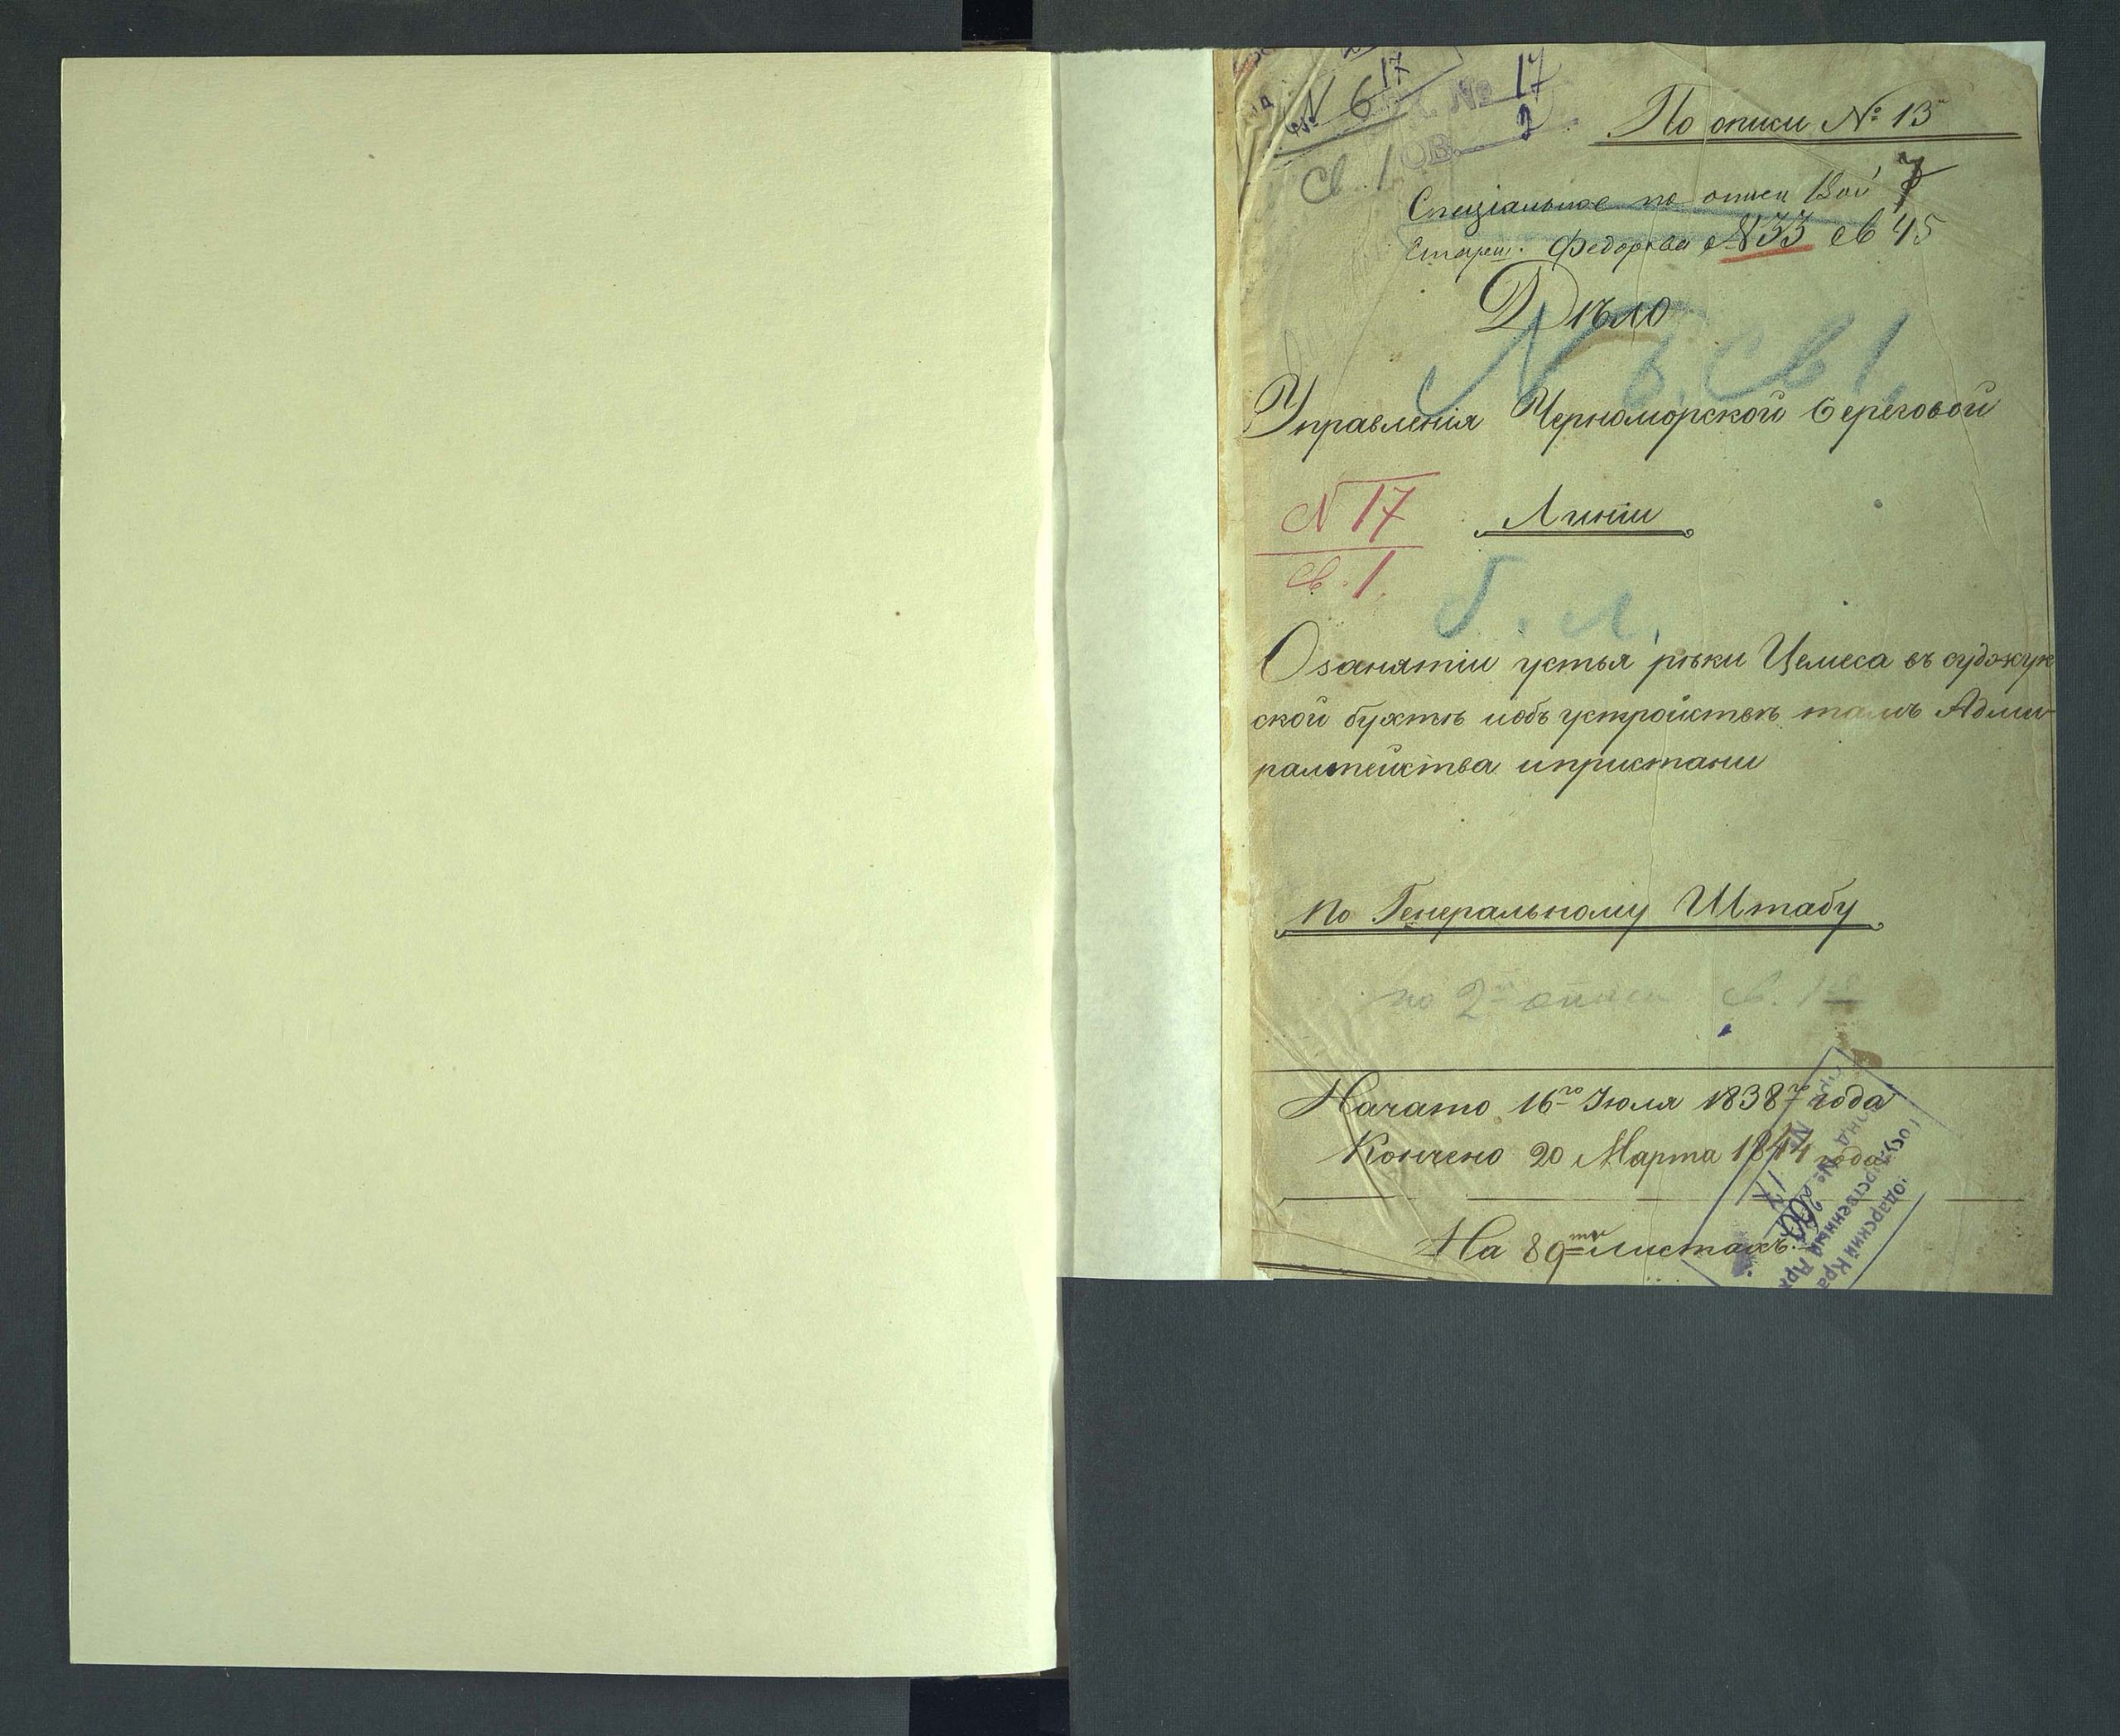 N 6 17
Арх. № 17
Св. 1
По описи № 13
Спеціальное по описи Вой 7
Стареш. Федорова N33 св 45
Дѣло
N 6. Св 1.
Управленія Черноморской береговой
N 17
Линіи
св. 1.
б. л.
Озанятіи устья рѣки Цемеса въ суджук
ской бухтѣ иобъ устройствѣ тамъ Адми-
ралтейства ипристани
по Генеральному Штабу
по 2й описи св. 1
Начато 16го Іюля 1838го года
Кончено 20 Марта 1844 года
На 89ти листахъ.
одарский Кра
Государственный Арх
Фонд № 260
№ 17